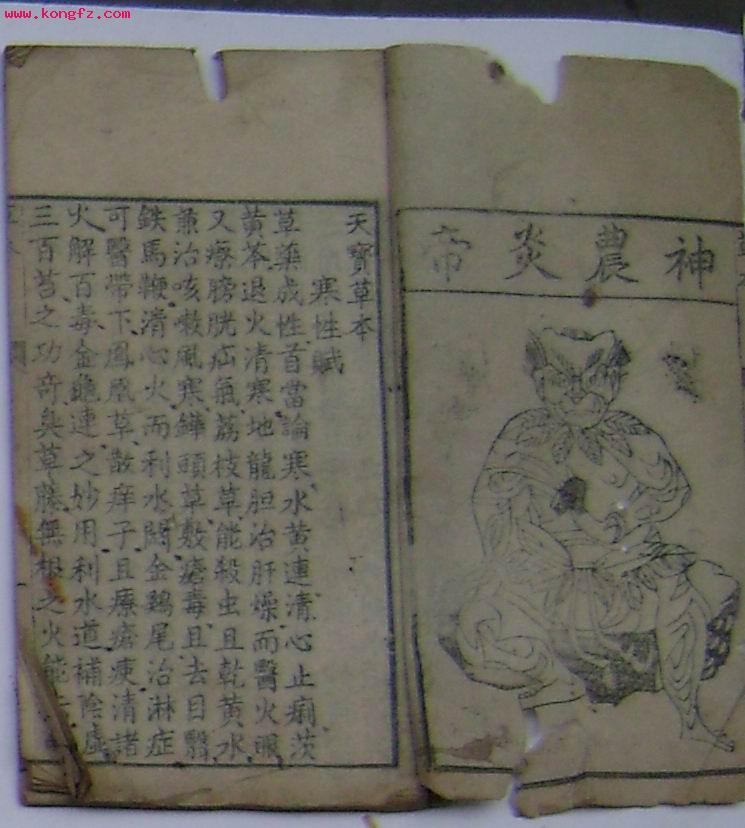 www.kongfz.com
神農炎帝
天寶草本
寒性賦
草藥成性首當論寒水黄連清心止痢茨
黄芩退火清寒地龍胆治肝燥而醫火眼
又療膀胱疝氣荔枝草能殺虫且乾黄水
兼治咳嗽風寒鏵頭草敷瘡毒且去目醫
鉄馬鞭清心火而利水闊金鷄尾治淋症
可醫帶下鳳凰草散痒子且療瘡痩清諸
火解百毒金龜連之妙用利水道補陰虚
三百苔之功奇矣草藤無根之火能